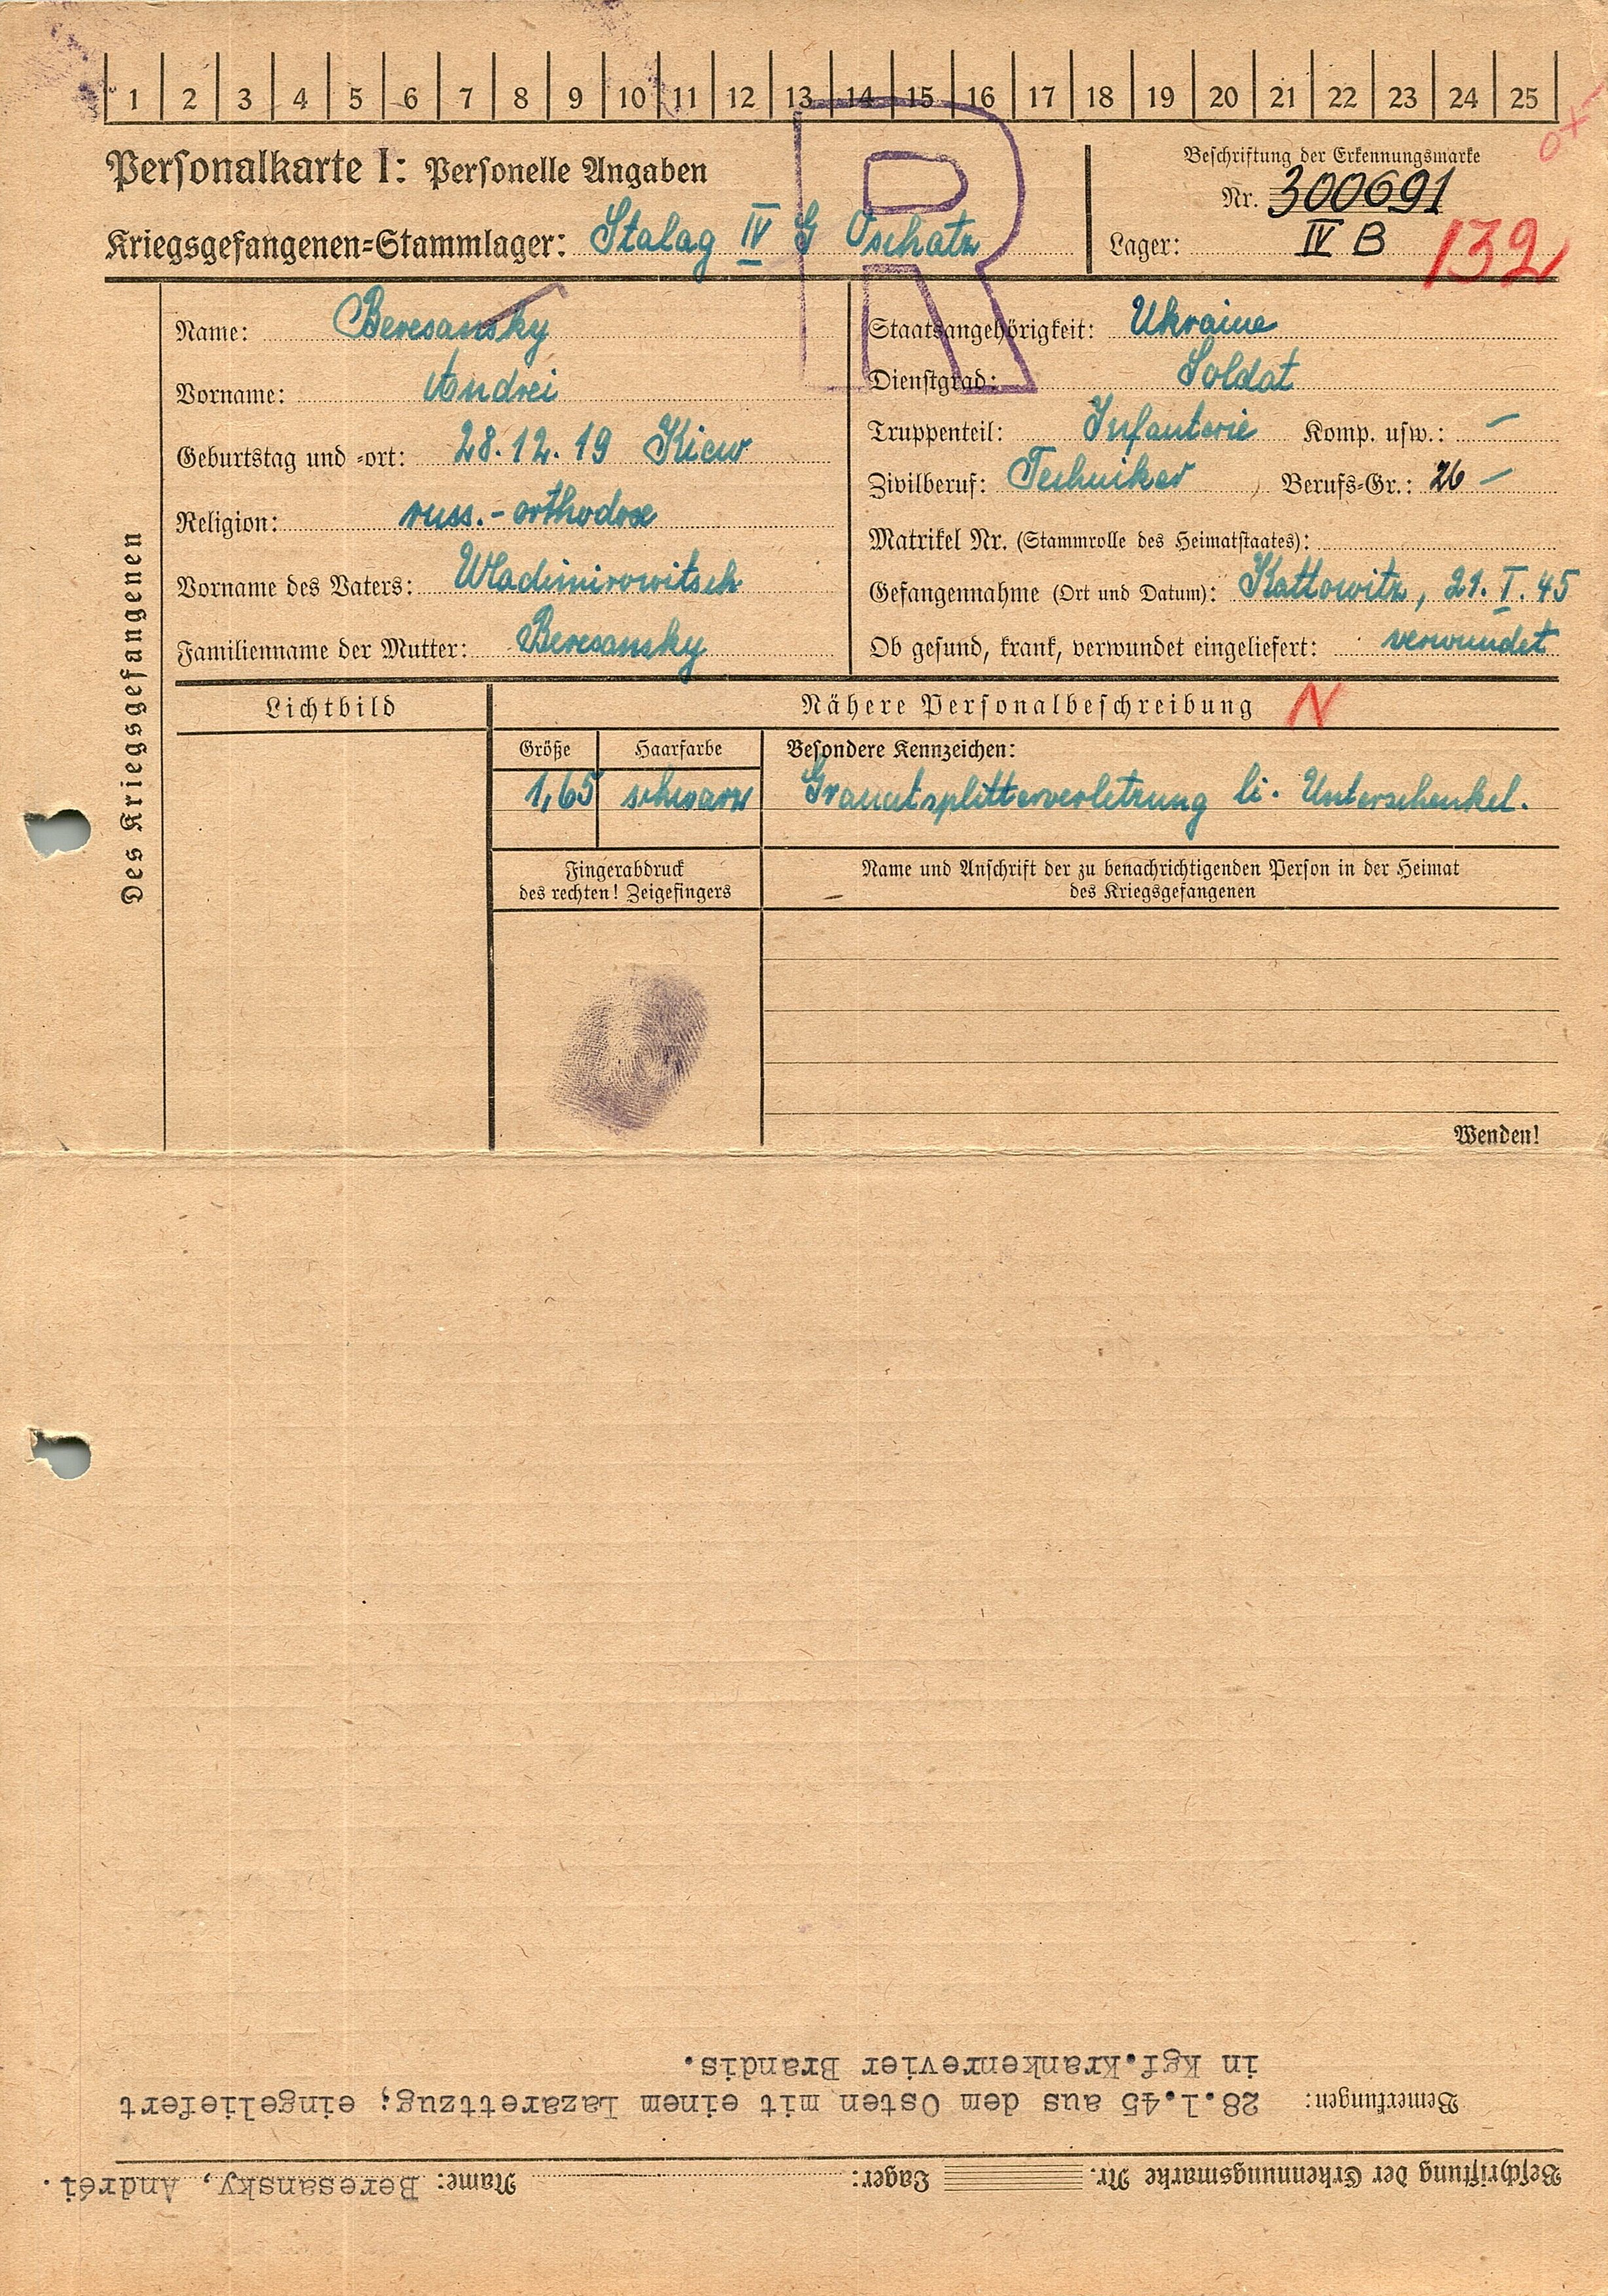 1 2 3 4 5 6 7 8 9 10 11 12 13 14 15 16 17 18 19 20 21 22 23 24 25
Personalkarte I: Personelle Angaben
Kriegsgefangenen=Stammlager: Stalag IV G Oschatz
R
Beschriftung der Erkennungsmarke
Nr. 300691
Lager: IV B 132
Des Kriegsgefangenen
Name: Beresansky
Vorname: Andrei
Geburtstag und =ort: 28.12.19 Kiew
Religion: russ.-orthodox
Vorname des Vaters: Wladimirowitsch
Familienname der Mutter: Beresansky
Staatsangehörigkeit: Ukraine
Dienstgrad: Soldat
Truppenteil: Infanterie Komp. usw.: –
Zivilberuf: Techniker Berufs=Gr.: 26 –
Matrikel Nr. (Stammrolle des Heimatstaates):
Gefangennahme (Ort und Datum): Kattowitz, 21. I. 45
Ob gesund, krank, verwundet eingeliefert: verwundet
Lichtbild
Nähere Personalbeschreibung N
Größe Haarfarbe Besondere Kennzeichen:
1,65 schwarz Granatsplitterverletzung li. Unterschenkel.
Fingerabdruck
des rechten! Zeigefingers
Name und Anschrift der zu benachrichtigenden Person in der Heimat
des Kriegsgefangenen
Wenden!
Beschriftung der Erkennungsmarke Nr. Lager: Name: Beresansky, Andréi.
Bemerkungen: 28.1.45 aus dem Osten mit einem Lazarettzug; eingeliefert
in Kgf.Krankenrevier Brandis.